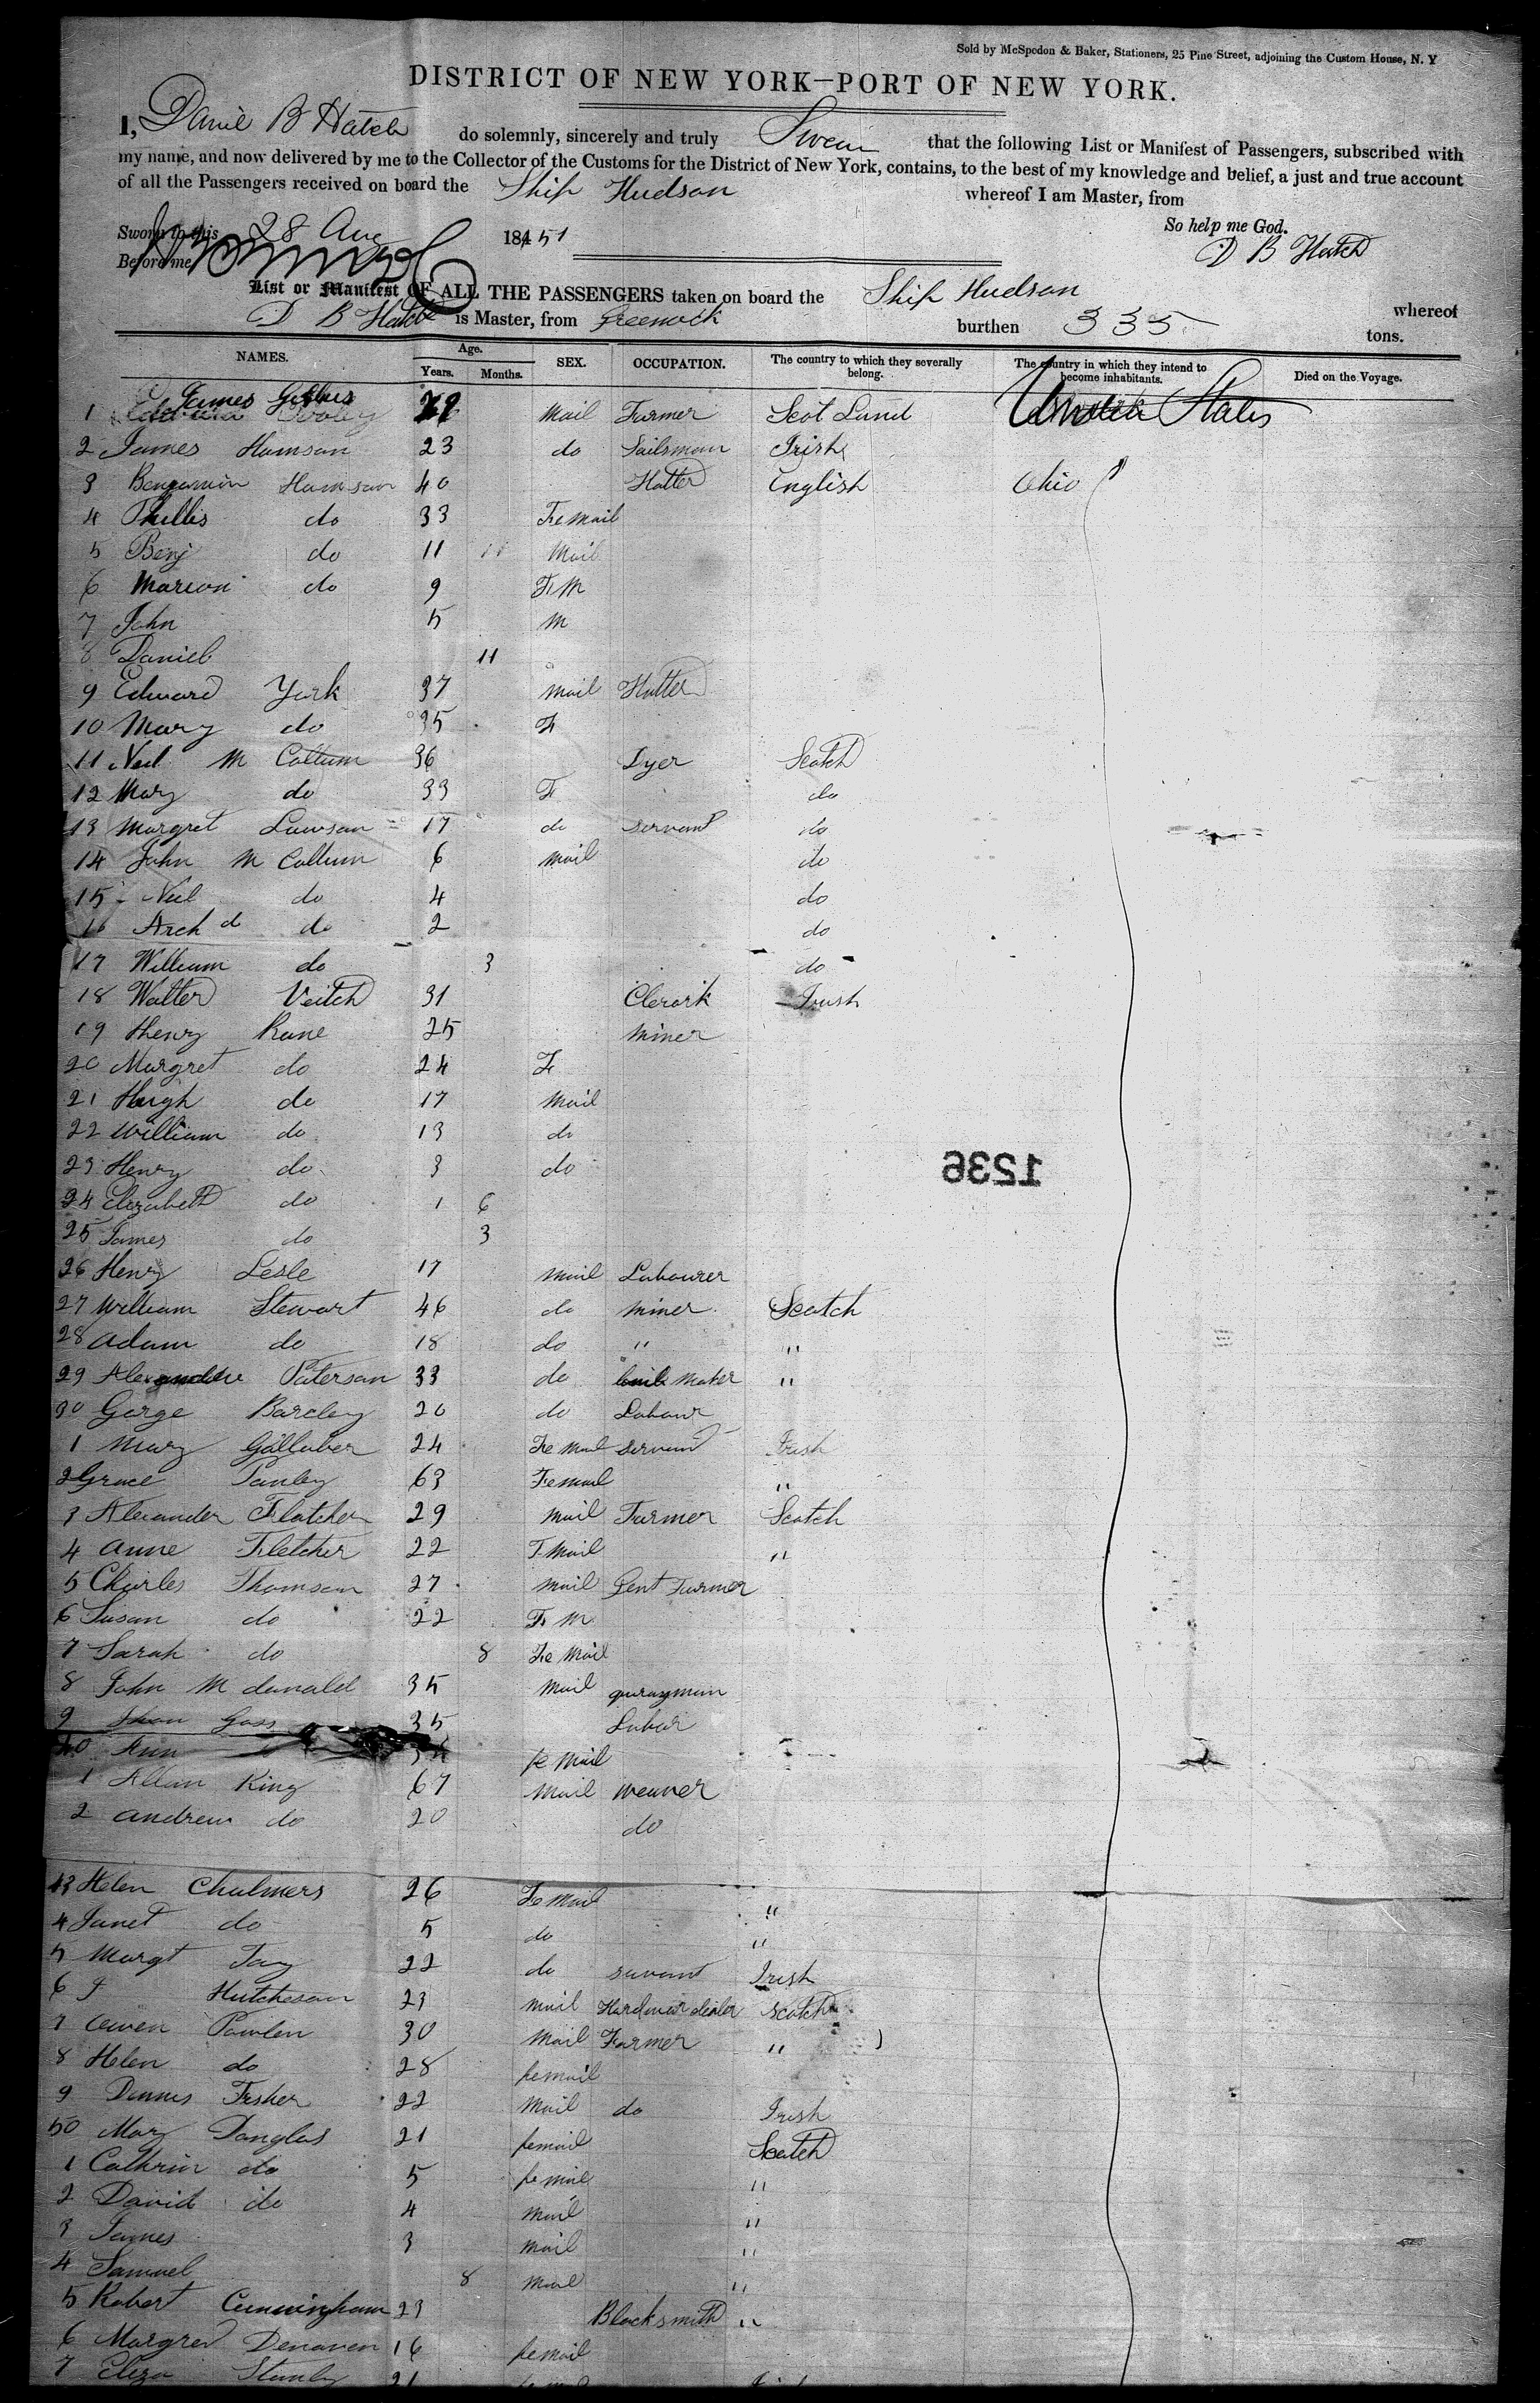 Sold by McSpedon & Baker, Stationers, 25 Pine Street, adjoining the Custom House, N. Y
DISTRICT OF NEW YORK—PORT OF NEW YORK.
I, Daniel B Hatch do solemnly, sincerely and truly Swear that the following List or Manifest of Passengers, subscribed with
my name, and now delivered by me to the Collector of the Customs for the District of New York, contains, to the best of my knowledge and belief, a just and true account
of all the Passengers received on board the Ship Hudson whereof I am Master, from
Sworn to this 28 Aug 184 51 So help me God.
Before me D B Hatch
List or Manifest OF ALL THE PASSENGERS taken on board the Ship Hudson whereof
D B Hatch is Master, from Greenock burthen 335 tons.
NAMES. Age. Years. Months. SEX. OCCUPATION. The country to which they severally belong. The country in which they intend to become inhabitants. Died on the Voyage.
1 James Mail Farmer Scot Land United States
2 James Hamson 23 do Sailsman Irish
3 Bengamin Hamson 40 Hatter English Ohio
4 Phillis do 33 Fe mail
5 Benj do 11 Mail
6 Marion do 9 F M
7 John 5 M
8 Daniel 11
9 Edward York 37 Mail Hatter
10 Mary do 35 F
11 Neil M Collum 36 Dyer Scotch
12 Mary do 33 F do
13 Margret Lawson 17 do servant do
14 John M Collum 6 mail do
15 Neil do 4 do
16 Arch d do 2 do
17 William do 3 do
18 Walter Veitch 31 Clerork Irish
19 Henry Rane 25 Miner
20 Margret do 24 F
21 Hugh do 17 Mail
22 William do 13 do
23 Henry do 3 do
24 Elezabeth do 1 6
25 James do 3
26 Henry Lesle 17 Mail Labourer
27 William Stewart 46 do Miner Scotch
28 Adam do 18 do " "
29 Alexander Paterson 33 do maker "
30 Gorge Barcley 20 do Labour
1 Mary Gallaher 24 Fe Mail servant Irish
2 Grace 63 Femail "
3 Alexander Flatcher 29 Mail Farmer Scotch
4 Anne Fletcher 22 F Mail "
5 Charles Thomson 27 Mail Gent Farmer
6 Susan do 22 F M
7 Sarah do 8 Fe Mail
8 John M donald 35 Mail quraynman
9 Goss 35 Labor
40 Ann fe mail
1 Allan King 67 Mail weaver
2 Andrew do 20 do
43 Helen Chalmers 26 Fe Mail "
4 Janet do 5 do "
5 Margt 22 do servant Irish
6 J Hutcheson 23 Mail Hardwar dealer Scotch
7 Owen Powlen 30 Mail Farmer "
8 Helen do 28 femail
9 Dennis Fisher 22 Mail do Irish
50 Mary Douglas 21 femail Scotch
1 Cathrin do 5 fe mail "
2 David do 4 Mail "
3 James 3 Mail "
4 Samuel 8 Mail "
5 Robert Cunningham 23 Blacksmith "
6 Margred Denaven 16 femail
7 Eliza Stanley 21
1236